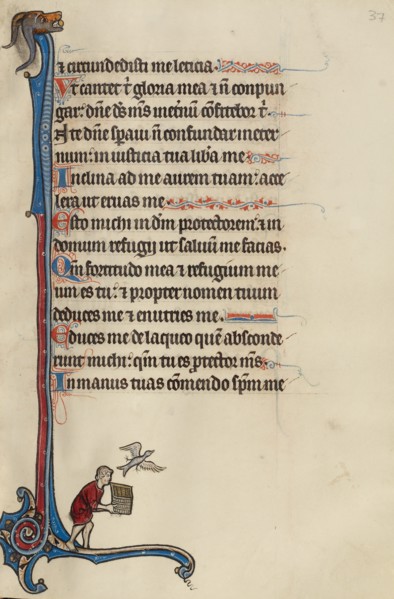 37
& circundedisti me leticia.
Vt cantet t̄ gloria mea & n̄ conpun
gar: dn̄e ds̄ ms̄ inet̄nū cōfitebor t̄.
In te dn̄e sp̄aui n̄ confundar in eter
num: in iusticia tua lib̄a me
Inclina ad me aurem tuam: acce
lera ut eruas me
Esto michi in dm̄ protectorem: & in
domum refugij ut saluū me facias.
Qm̄ fortitudo mea & refugium me
um es tu: & propter nomen tuum
deduces me & enutries me.
Educes me de laqueo quē absconde
runt michi: qm̄ tu es ꝓtector ms̄.
In manus tuas cōmendo sp̄m me